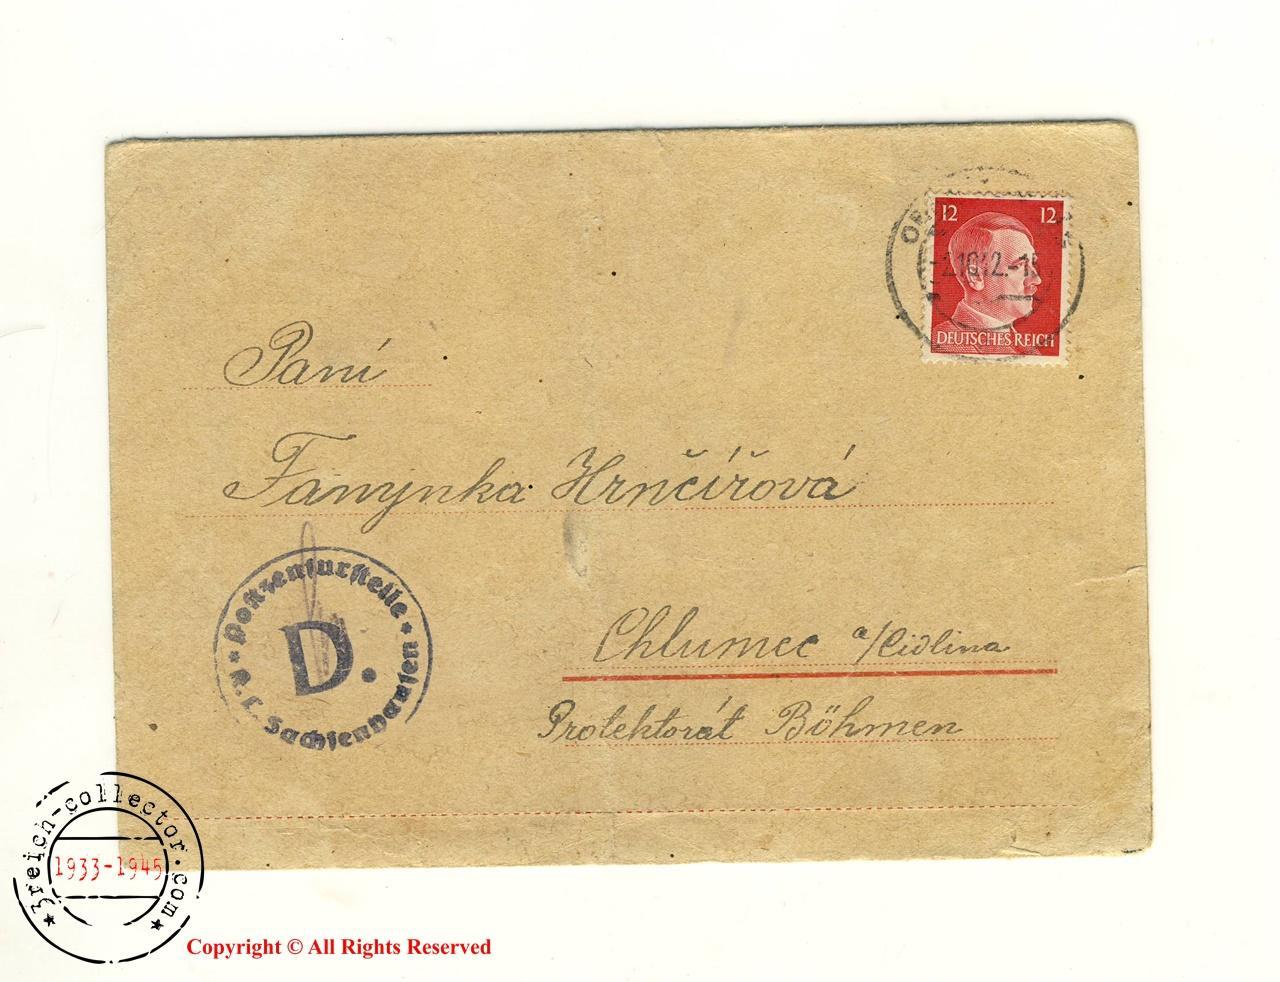 12 12
2.10.42.-15
DEUTSCHES REICH
Paní
Fanynka Hrnčířová
Postzensurstelle
D.
K.L. Sachsenhausen
Chlumec a/Cidlina
Protektorát Böhmen
3reich-collector.com
1933-1945
Copyright © All Rights Reserved